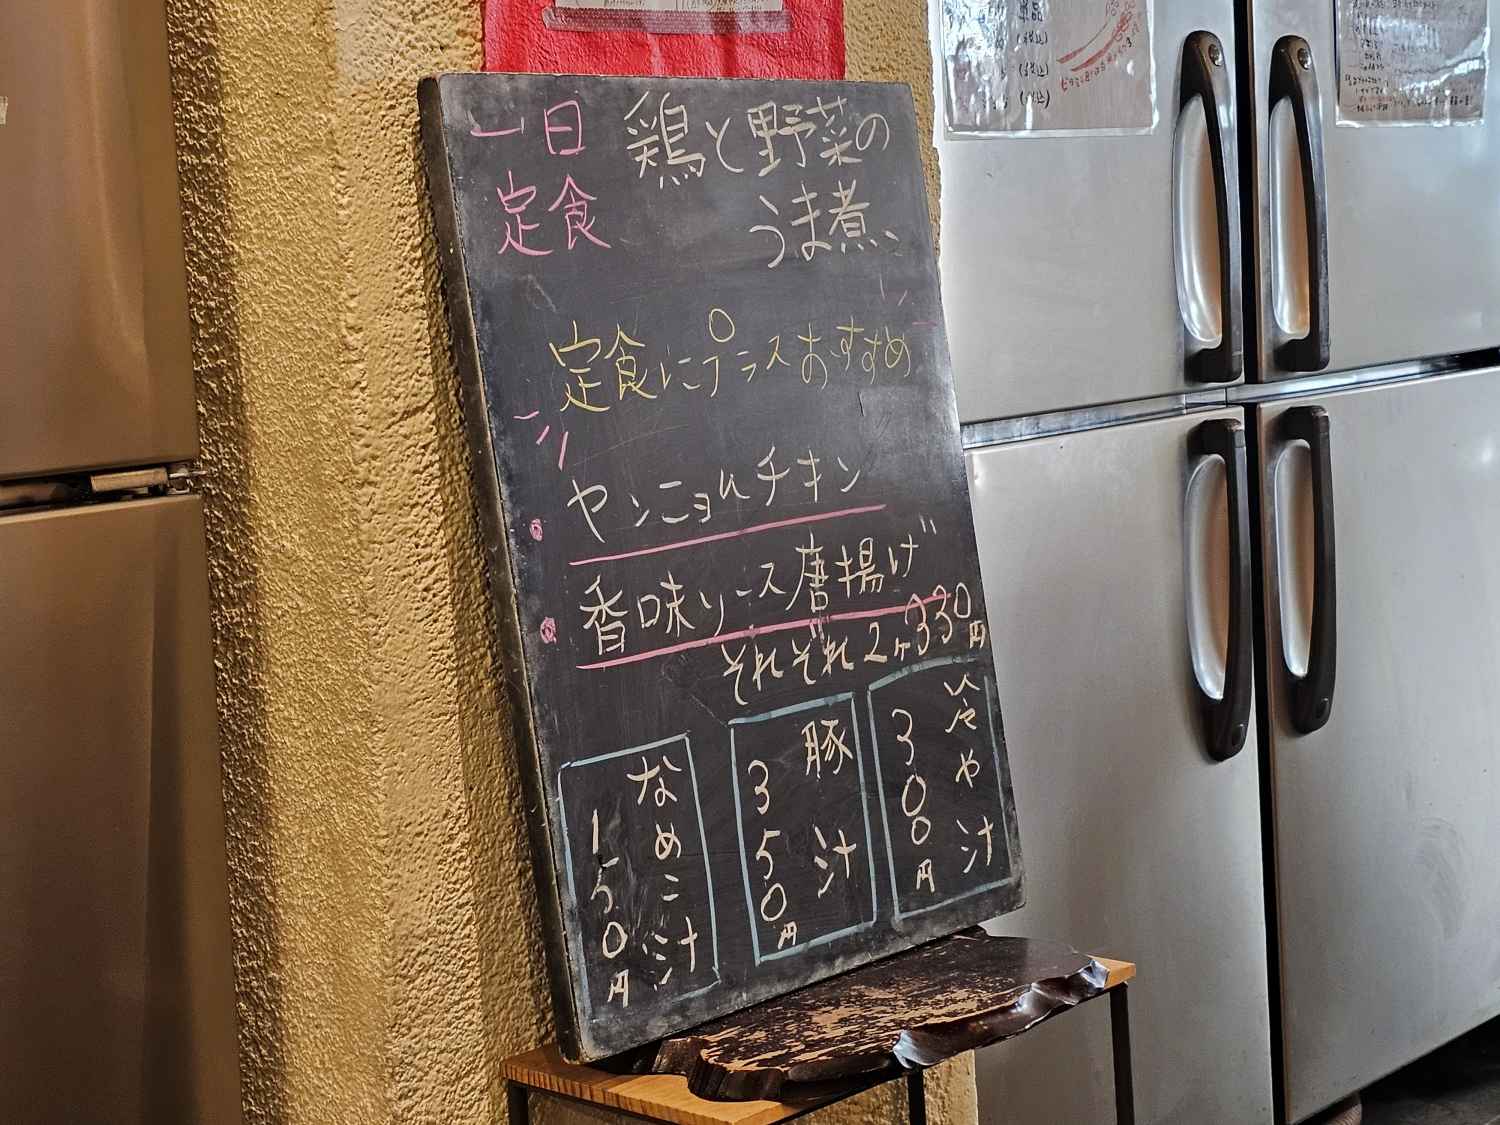 一日 鶏と野菜の
定食 うま煮
定食にプラスおすすめ
ヤンニョムチキン
香味ソース唐揚げ
それぞれ2ヶ330円
冷や汁
300円
豚汁
350円
なめこ汁
150円